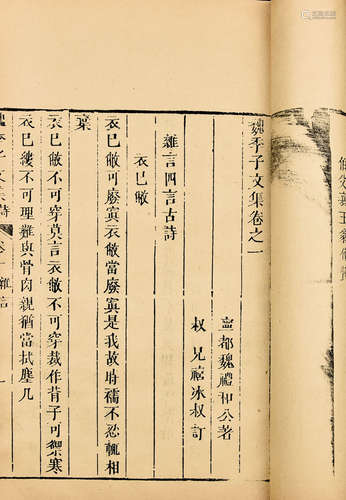 魏季子文集卷之一
寧都魏禮和公著
叔兄禧冰叔訂
雜言四言古詩
衣已敝
衣已敝可廢寘衣敝當廢寘是我故時襦不忍輒相
棄
衣已敝不可穿莫言衣敝不可穿裁作背子可禦寒
衣已縷不可理難與骨肉親猶當拭塵几
魏季子文集詩 卷一 雜言 一